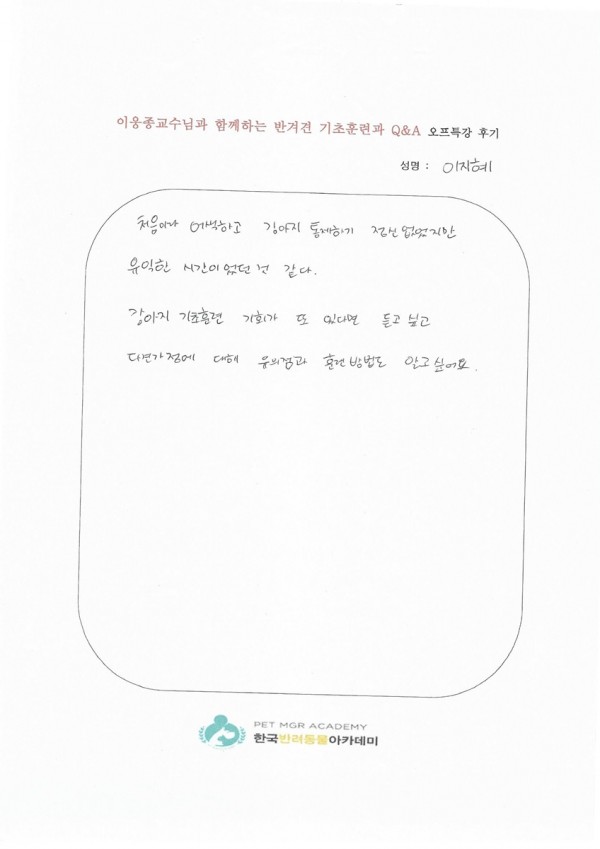 이웅종교수님과 함께하는 반겨견 기초훈련과 Q&A 오프특강 후기
성명 : 이지혜
처음이라 어색하고 강아지 통제하기 정신 없었지만
유익한 시간이었던 것 같다.
강아지 기초훈련 기회가 또 있다면 듣고 싶고
다견가정에 대해 유의점과 훈련 방법도 알고 싶어요.
PET MGR ACADEMY
한국반려동물아카데미